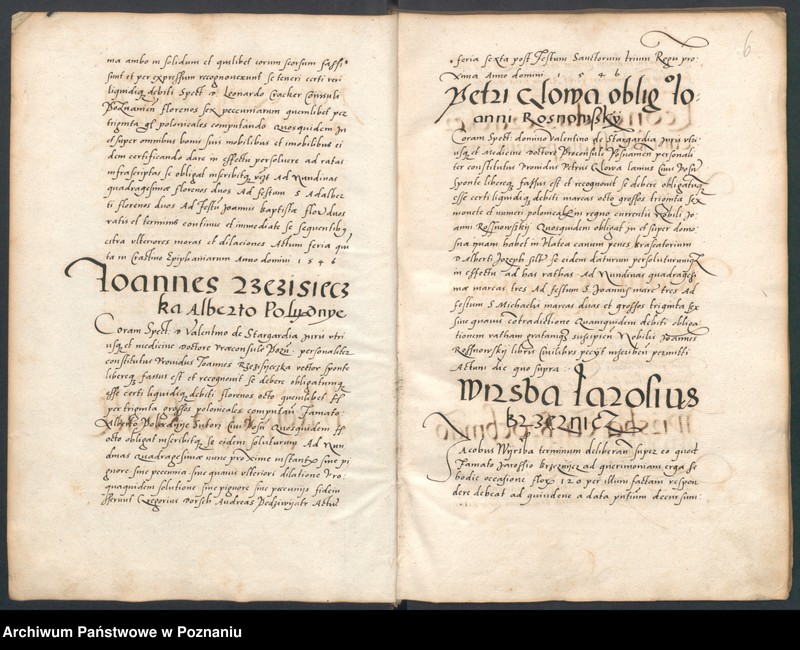 ma ambo in solidum et quilibet eorum seorsum fassi
sunt et per expressum recognoverunt se teneri certi veri
liquidiq debiti Spect D Leonardo Cracher Consuli
Poznanien florenos sex pecuniarum quemlibet per
triginta gr polonicales computando Quosquidem in
et super omnibus bonis suis mobilibus et imobilibus ei
dem certificando dare in effectu persoluere ad ratas
infrascriptas se obligat inscribitq Ad Nundinas
quadragesimæ florenos duos Ad festum S Adalber
ti florenos duos Ad festū Joannis baptistæ flox duos
ratis et terminis continue et immediate se sequentibq
citra ulteriores moras et dilaciones Actum feria quī
ta in Crastino Epiphaniarum Anno domini 1546
Ioannes Rzezisiecz
ka Alberto Poludnye
Coram Spect: D Valentino de Stargardia Juris utri
usq et medicine doctore Præconsule Pozn: personaliter
constitutus Providus Joannes Rzezisyecska rector sponte
libereq fassus est et recognovit se debere obligatumq
esse certi liquidiq debiti florenos octo quemlibet fl
per triginta grossos polonicales computañ famato
Alberto Poludnye Sutori Civi Posñ Quosquidem fl
octo obligat inscribitq se eidem soluturum Ad Nun
dinas quadragesimæ nunc proxime instantes sine pi
gnore sine peccunia sine quavis ulteriori dilatione Pro
quaquidem solutione sine pignore sine peccunijs fidem
Gregorius Andreas Actū
6
feria sexta post festum Sanctorum trium Regū pro
xima Anno domini 1546
Petri Glowa oblig Io
anni Rosnowsky
Coram Spect: domino Valentino de Stargardia Juris utri
usq et Medicine doctore Proconsule Posnanien personali
ter constitutus Providus Petrus Glowa lanius Civis Posñ
sponte libereq fassus est et recognovit se debere obligatūq
esse certi liquidiq debiti marcas octo grossos triginta sex
monete et numeri polonicalis in regno currentis Nobili Jo
anni Rossnowsky Quosquidem obligat in et super domo
sua quam habet in Platea canum penes braseatorium
D Alberti Jozeph silr se eidem daturum persoluturumq
in effectu ad has rathas Ad Nundinas quadragesi
mæ marcas tres Ad festum S Joannis marc tres Ad
festum S Michaelis marcas duas et grossos triginta sex
sine quavis contradictione Quamquidem debiti obliga
tionem ratham gratamq suscipien Nobilis Joannes
Rossnowsky libris Civilibus inscriberi permisit
Actum die quo supra
Wirsba Iarosius
Brzeznicz
Jacobus Wyrsba terminum deliberan super eo quod
famato Jarossio brzeznicz ad querimoniam erga se
hodie occasione flox 120 per illum factam respon
dere debeat ad quindenе a data decursum
Archiwum Państwowe w Poznaniu